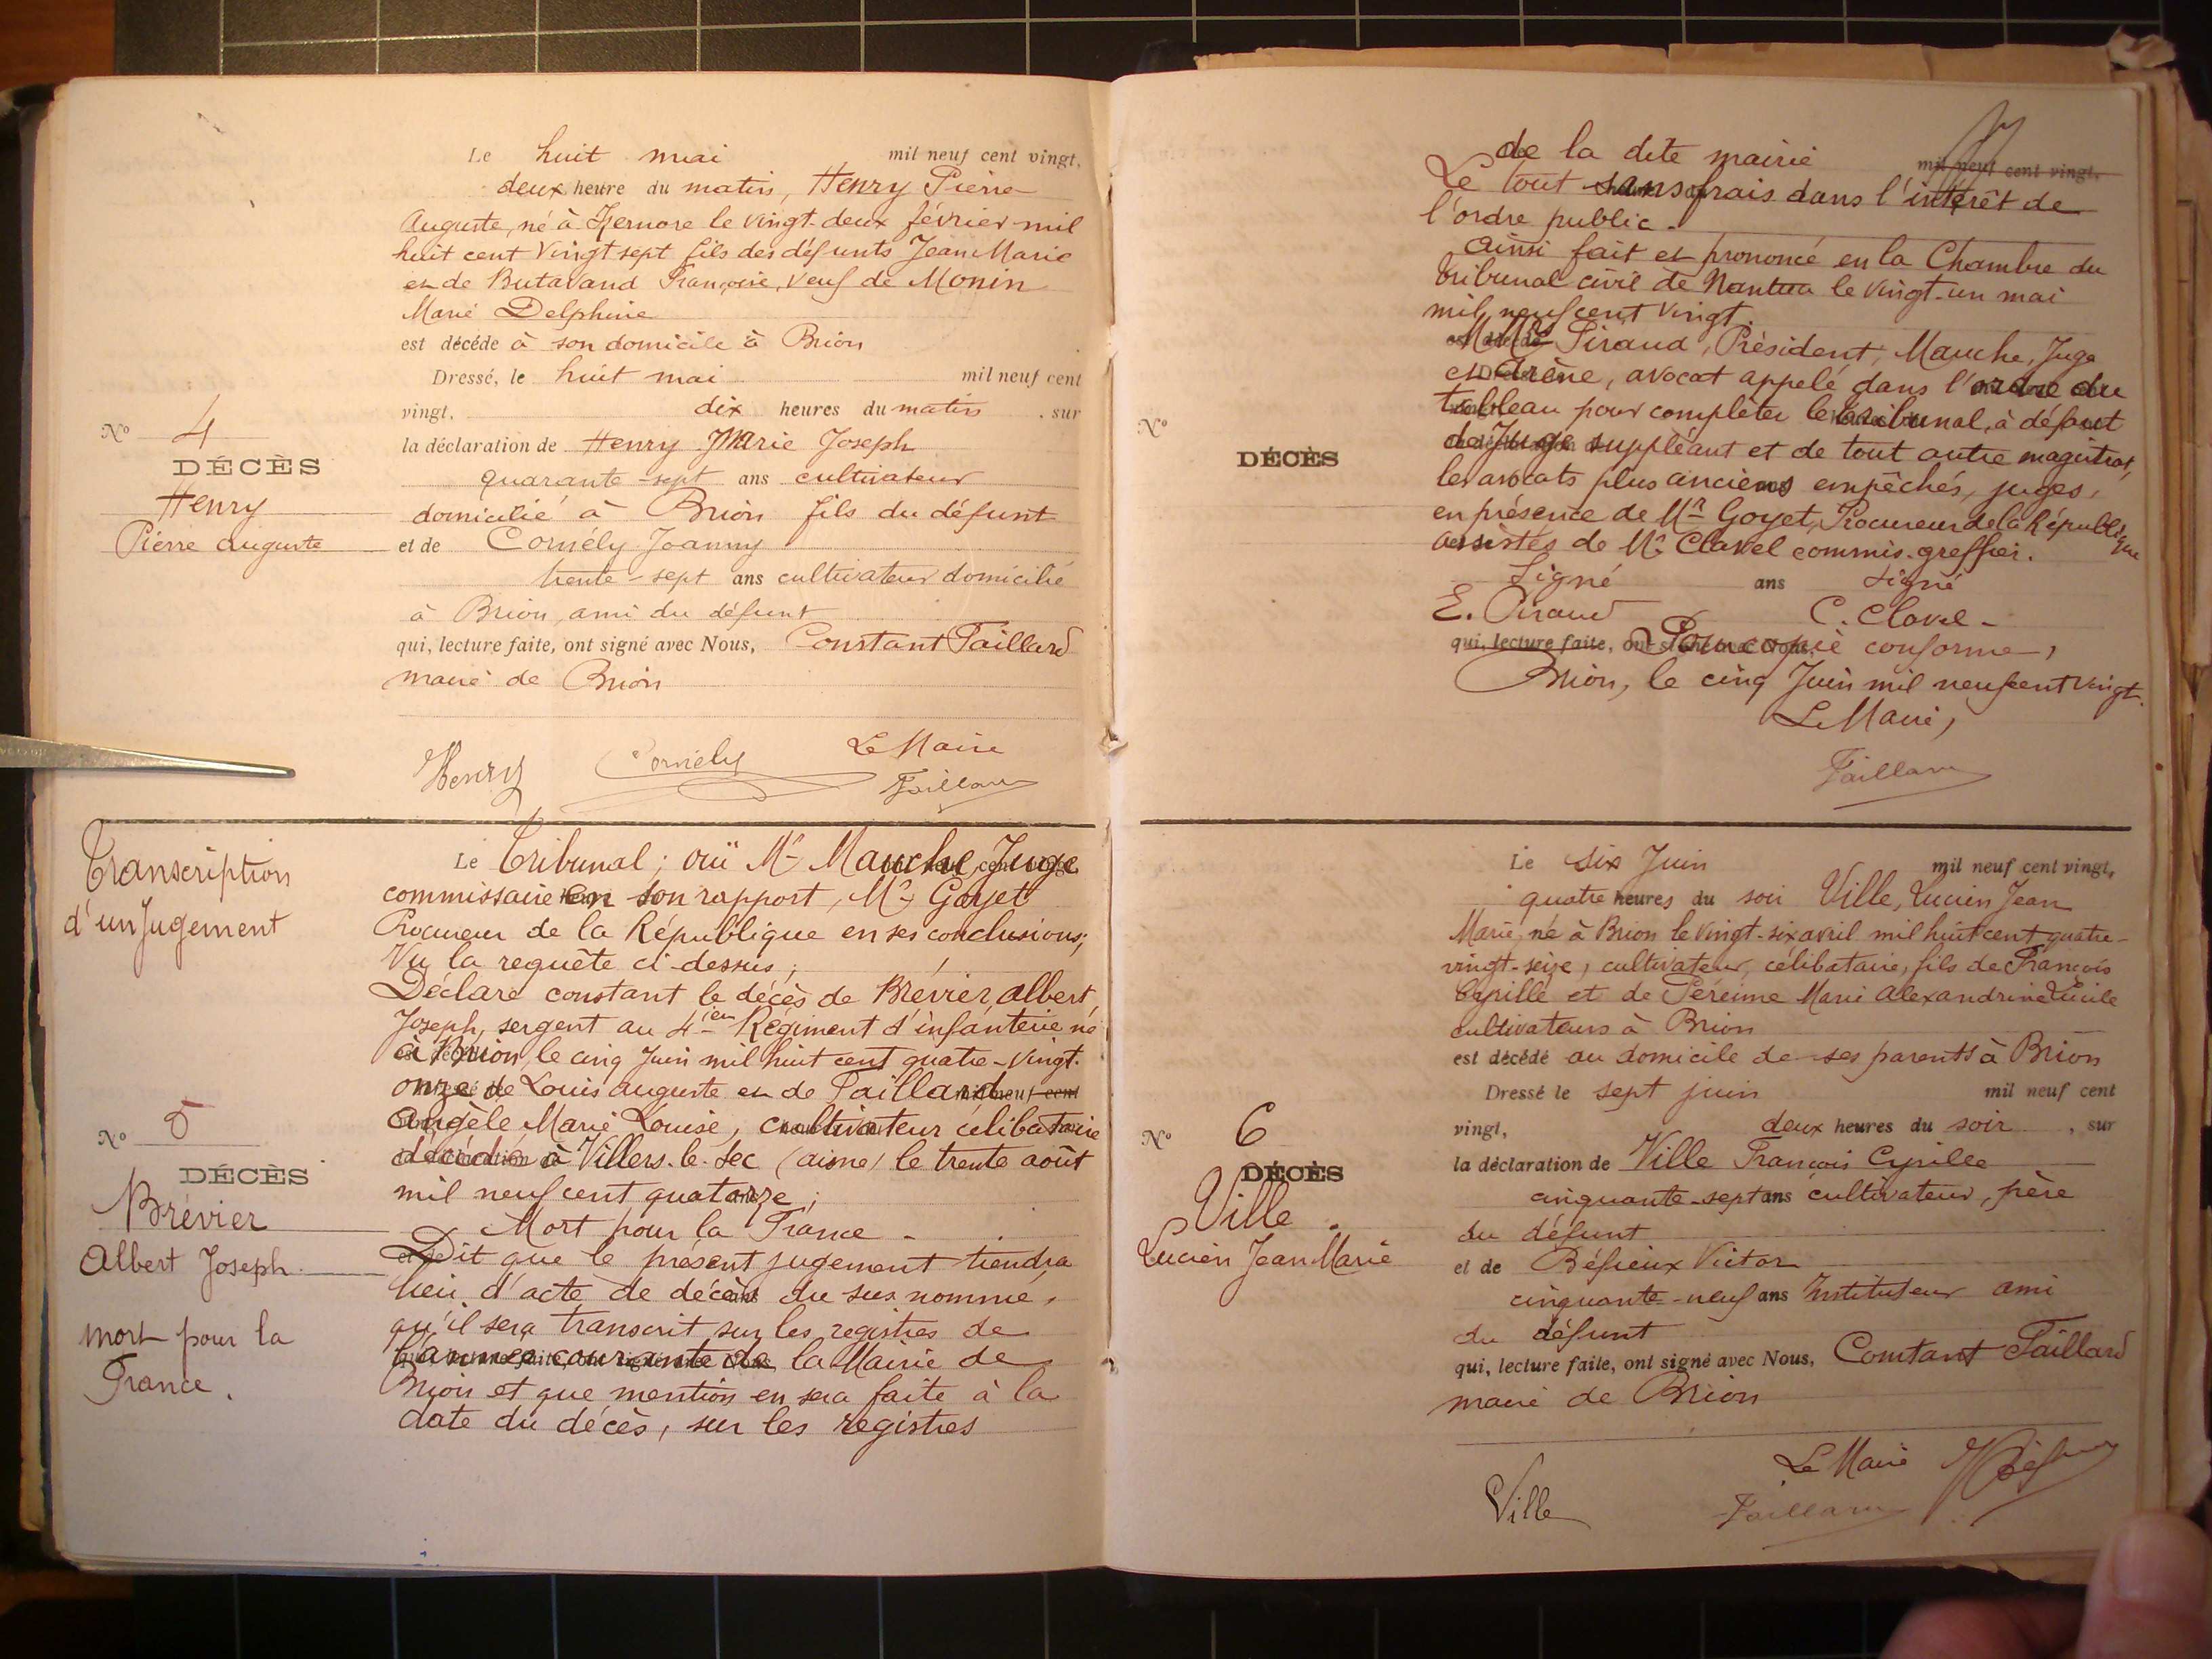 Le huit mai mil neuf cent vingt,
deux heure du matin, Henry Pierre
Auguste, né à Izernore le vingt-deux février mil
huit cent vingt sept fils des défunts Jean Marie
et de Butavand Françoise, veuf de Monin
Marie Delphine
est décédé à son domicile à Brion
Dressé, le huit mai mil neuf cent
vingt, dix heures du matin, sur
N° 4
la déclaration de Henry Marie Joseph
DÉCÈS
quarante-sept ans cultivateur
Henry
domicilié à Brion fils du défunt
Pierre Auguste
et de Cornély Joanny
trente-sept ans cultivateur domicilié
à Brion, ami du défunt
qui, lecture faite, ont signé avec Nous, Constant Taillard
maire de Brion
Henry Cornély Le Maire
Taillard
Transcription
d'un Jugement
Le Tribunal; ouï Mr Mauche, Juge
commissaire en son rapport, Mr Goyet
Procureur de la République en ses conclusions;
Vu la requête ci-dessus;
Déclare constant le décès de Brévier, Albert,
Joseph, sergent au 4ième Régiment d'infanterie né
à Brion, le cinq Juin mil huit cent quatre-vingt-
onze de Louis Auguste et de Taillard
Angèle Marie Louise, cultivateur célibataire
décédé à Villers-le-Sec (aisne) le trente août
mil neuf cent quatorze;
N° 5
DÉCÈS
Brévier
Albert Joseph
mort pour la
France.
Mort pour la France.
Dit que le présent jugement tiendra
lieu d'acte de décès du sus nommé,
qu'il sera transcrit sur les registres de
l'année courante de la Mairie de
Brion et que mention en sera faite à la
date du décès, sur les registres
7
de la dite mairie mil neuf cent vingt,
Le tout sans frais dans l'intérêt de
l'ordre public.
Ainsi fait et prononcé en la Chambre du
tribunal civil de Nantua le vingt-un mai
mil neuf cent vingt.
M.M. Piraud, Président, Mauche, Juge
et Arène, avocat appelé dans l'ordre du
tableau pour compléter le tribunal, à défaut
de Juge suppléant et de tout autre magistrat,
les avocats plus anciens empêchés, juges,
en présence de Mr Goyet, Procureur de la République
assistés de Mr Clavel commis-greffier.
N°
DÉCÈS
Signé ans signé
E. Piraud C. Clavel
qui, lecture faite, ont signé avec Nous, Pour copie conforme,
Brion, le cinq Juin mil neuf cent vingt.
Le Maire,
Taillard
Le six Juin mil neuf cent vingt,
quatre heures du soir Ville, Lucien Jean
Marie, né à Brion le vingt-six avril mil huit cent quatre-
vingt-seize, cultivateur, célibataire, fils de François
Cyrille et de Péreime Marie Alexandrine Lucile
cultivateurs à Brion
est décédé au domicile de ses parents à Brion
Dressé le sept juin mil neuf cent
vingt, deux heures du soir, sur
N° 6
DÉCÈS
Ville
Lucien Jean Marie
la déclaration de Ville François Cyrille
cinquante-sept ans cultivateur, père
du défunt
et de Béfieux Victor
cinquante-neuf ans Instituteur ami
du défunt
qui, lecture faite, ont signé avec Nous, Constant Taillard
maire de Brion
Ville Le Maire
Taillard